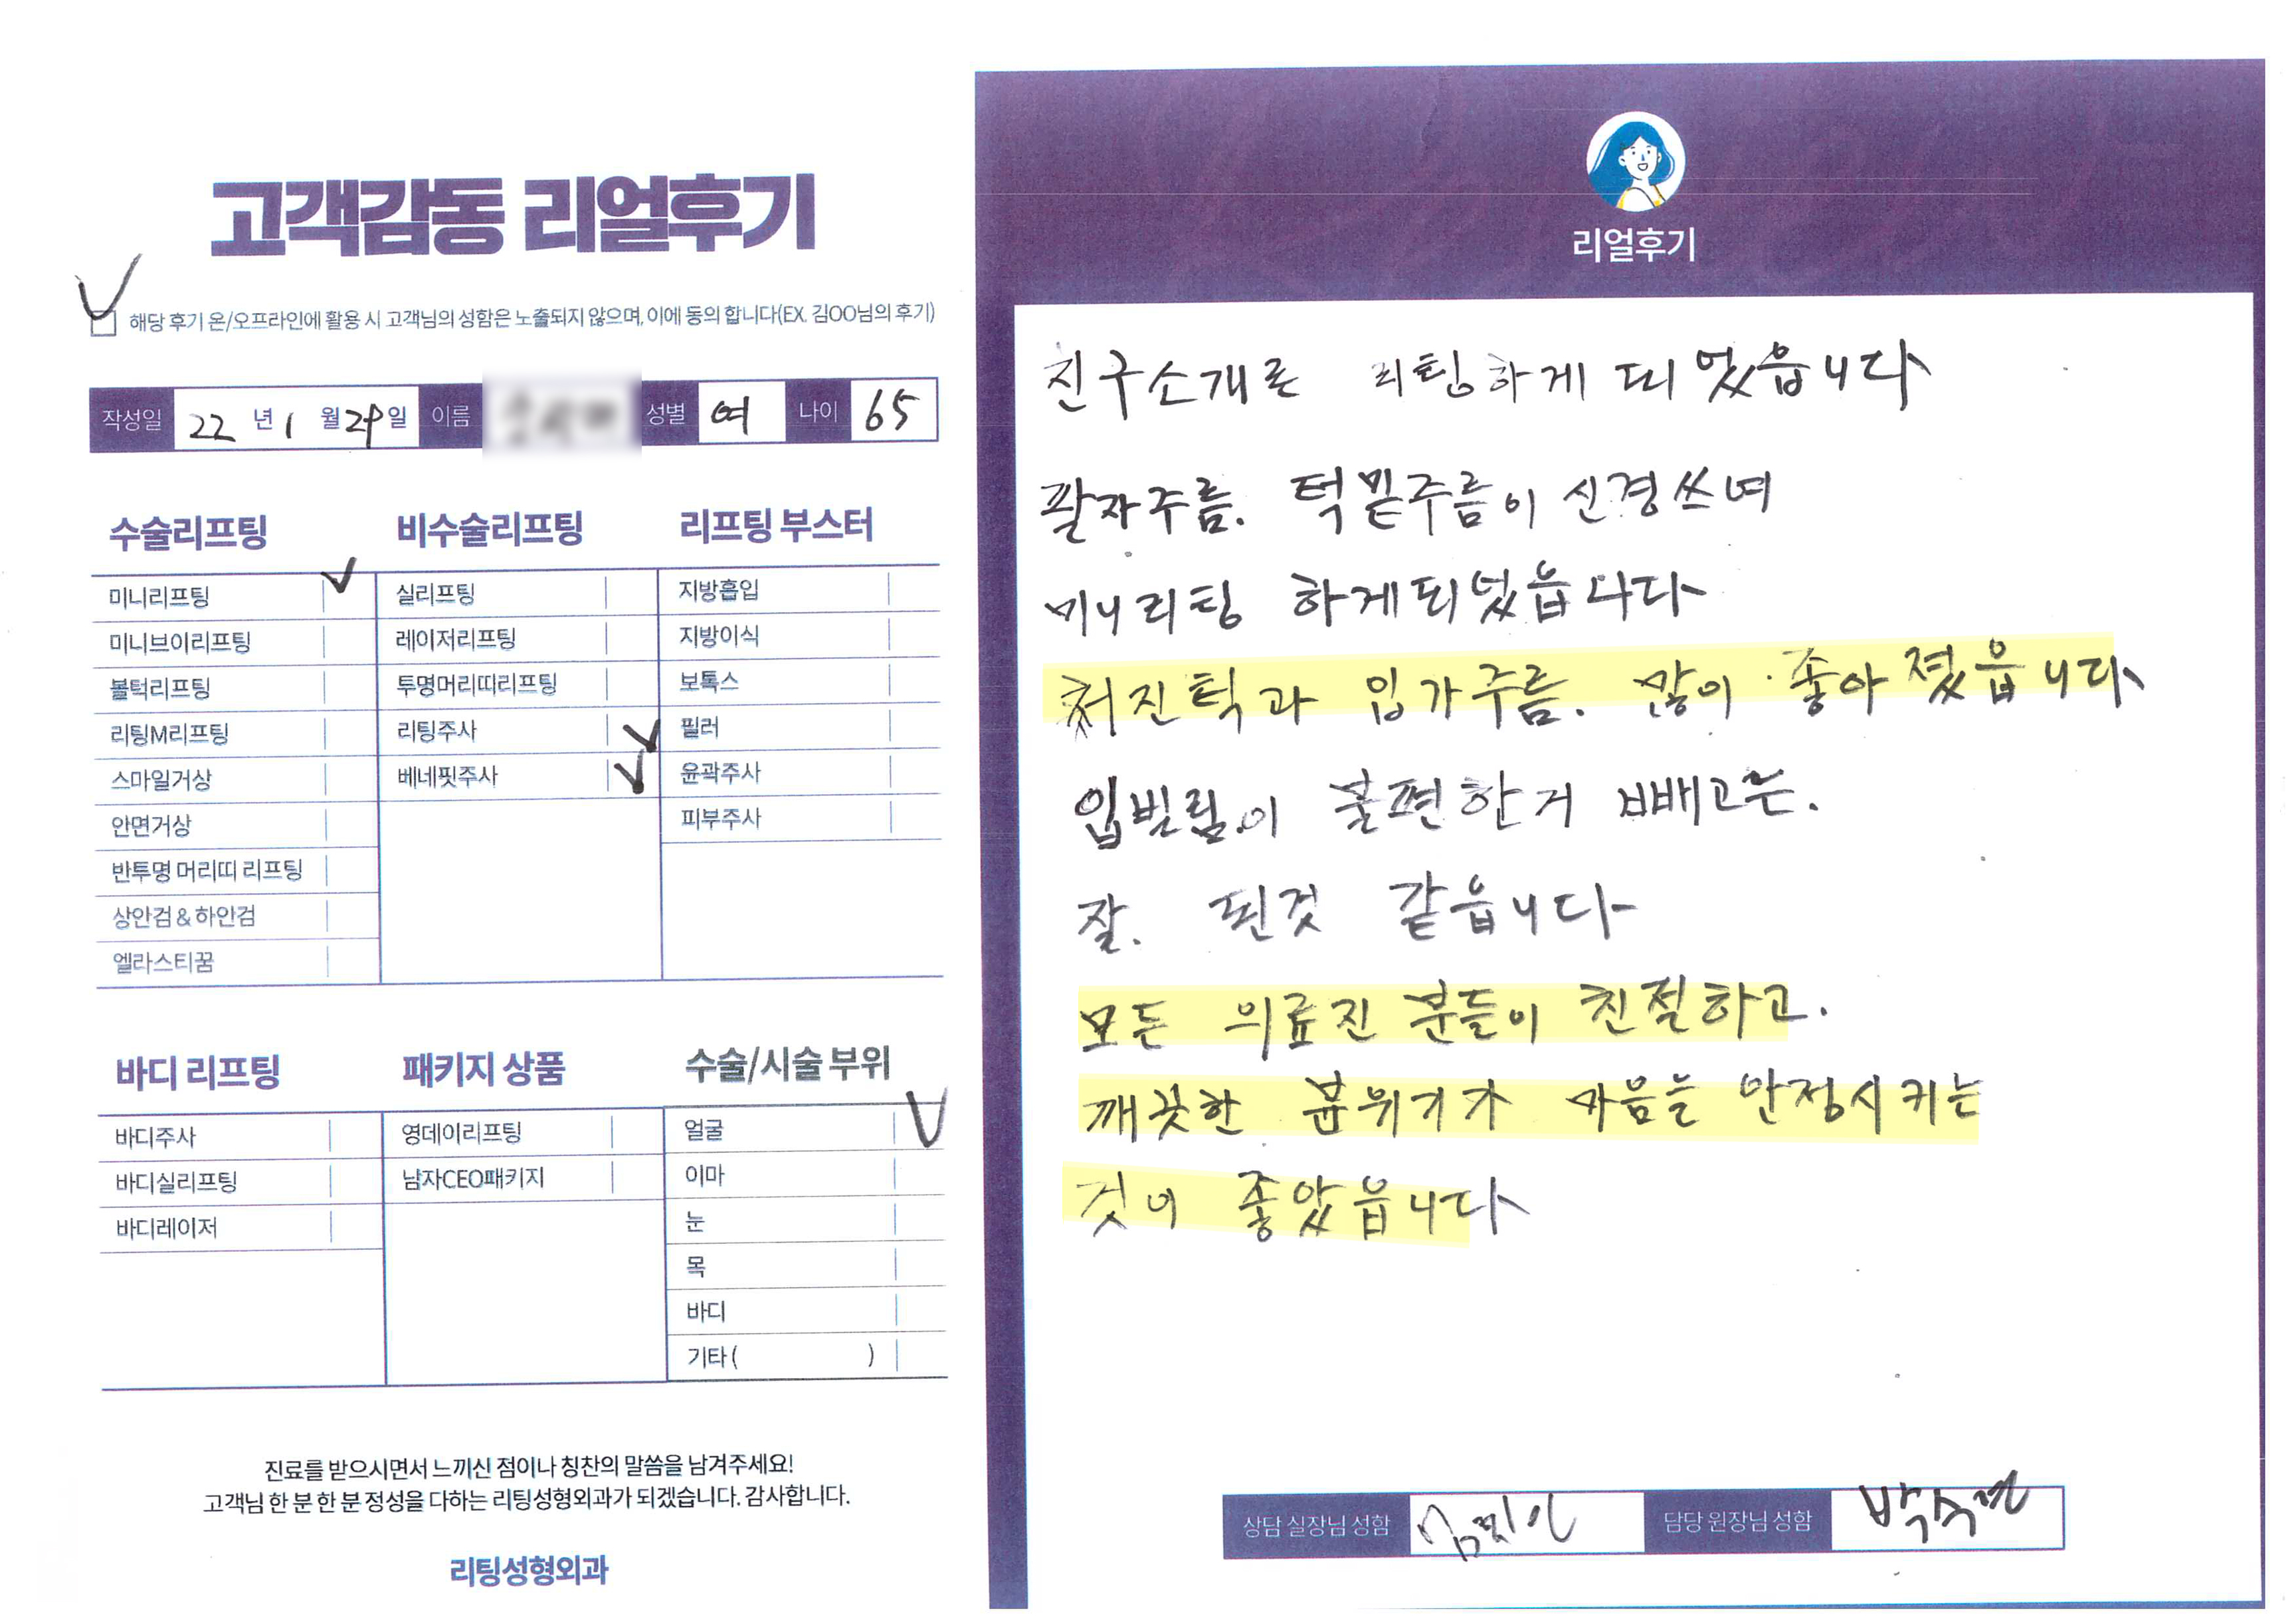 고객감동 리얼후기
해당 후기 온/오프라인에 활용 시 고객님의 성함은 노출되지 않으며, 이에 동의 합니다(EX. 김OO님의 후기)
작성일 22 년 1 월 29 일 이름 성별 여 나이 65
수술리프팅
미니리프팅
미니브이리프팅
볼턱리프팅
리팅M리프팅
스마일거상
안면거상
반투명 머리띠 리프팅
상안검 & 하안검
엘라스티꿈
비수술리프팅
실리프팅
레이저리프팅
투명머리띠리프팅
리팅주사
베네핏주사
리프팅 부스터
지방흡입
지방이식
보톡스
필러
윤곽주사
피부주사
바디 리프팅
바디주사
바디실리프팅
바디레이저
패키지 상품
영데이리프팅
남자CEO패키지
수술/시술 부위
얼굴
이마
눈
목
바디
기타 ( )
진료를 받으시면서 느끼신 점이나 칭찬의 말씀을 남겨주세요!
고객님 한 분 한 분 정성을 다하는 리팅성형외과가 되겠습니다. 감사합니다.
리팅성형외과
리얼후기
친구소개로 리팅하게 되었읍니다
팔자주름. 턱밑주름이 신경쓰여
미니리팅 하게되었읍니다
처진턱과 입가주름. 많이 좋아졌읍니다
입벌림이 불편한거 빼고는.
잘. 된것 같읍니다
모든 의료진 분들이 친절하고.
깨끗한 분위기가 마음을 안정시키는
것이 좋았읍니다
상담 실장님 성함 담당 원장님 성함